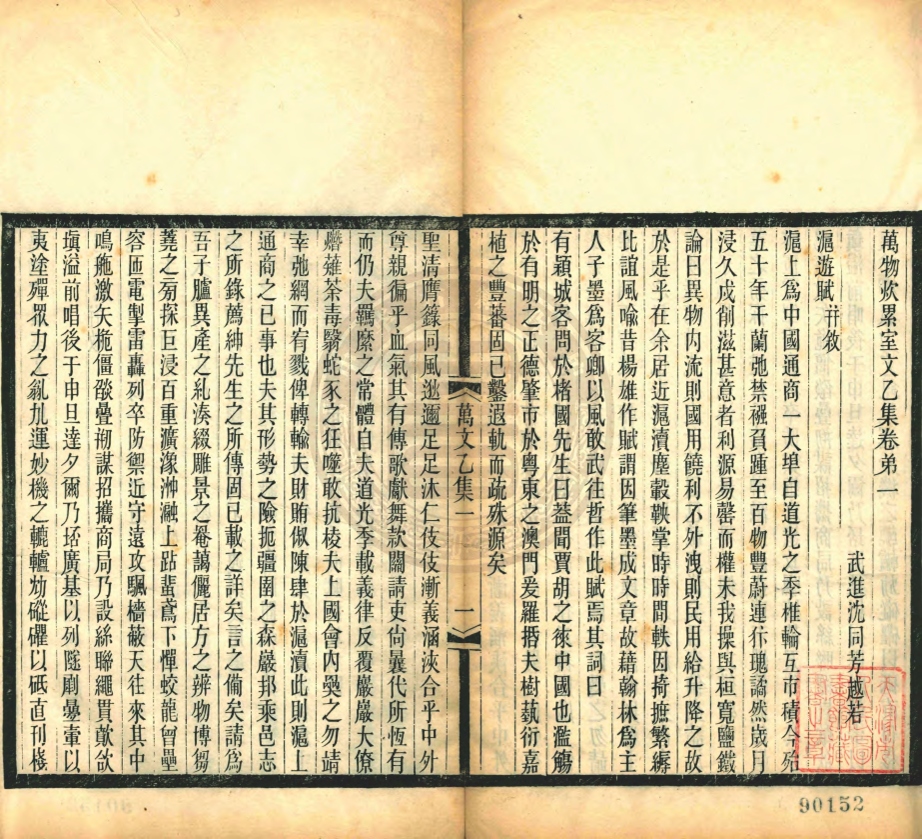 萬物炊累室文乙集卷弟一
武進沈同芳越若
滬遊賦 幷敘
滬上為中國通商一大埠自道光之季椎輪互市積今殆
五十年干蘭弛禁襁負踵至百物豐蔚連仳瑰譎然歲月
浸久戍創滋甚意者利源易罄而權未我操與桓寬鹽鐵
論曰異物內流則國用饒利不外洩則民用給升降之故
於是乎在余居近滬瀆塵轂鞅掌時時間軼因掎摭繁縟
比誼風喻昔楊雄作賦謂因筆墨成文章故藉翰林爲主
人子墨爲客卿以風敢武往哲作此賦焉其詞曰
有穎城客問於楮國先生曰蓋聞賈胡之徠中國也濫觴
於有明之正德肇市於粵東之澳門爰羅揩夫樹蓺衍嘉
植之豐蕃固已鑿遐軌而疏殊源矣
萬文乙集一
一
聖清膺籙同風逖邇足足沐仁伎伎漸義涵浹合乎中外
尊親徧乎血氣其有傳歌獻舞款關請吏尙曩代所恆有
而仍夫羈縻之常體自夫道光季載義律反覆巖巖大僚
嬉薤荼毒翳蛇豕之狂噬敢抗棱夫上國會內奰之勿靖
幸弛網而宥戮俾轉輸夫財賄俶陳肆於滬瀆此則滬上
通商之已事也夫其形勢之險扼疆圉之森嚴邦乘邑志
之所錄薦紳先生之所傳固已載之詳矣言之備矣請爲
吾子臚異產之糺湊綴雕景之菴藹儷居方之辨物博芻
蕘之菊探巨浸百重瀇瀁浺瀜上跕蜚鳶下憚蛟龍曾壘
容匝電掣雷轟列卒防禦近守遠攻颿檣蔽天往來其中
鳴䑨激矢枙僵燄疊朔謀招攜商局乃設絲聯繩貫歊欲
塡溢前唱後于申旦達夕爾乃坯廣基以列隧剷曓辜以
夷塗殫眾力之糺糺運妙機之轆轤劫礛礌以砥直刊棧
90152